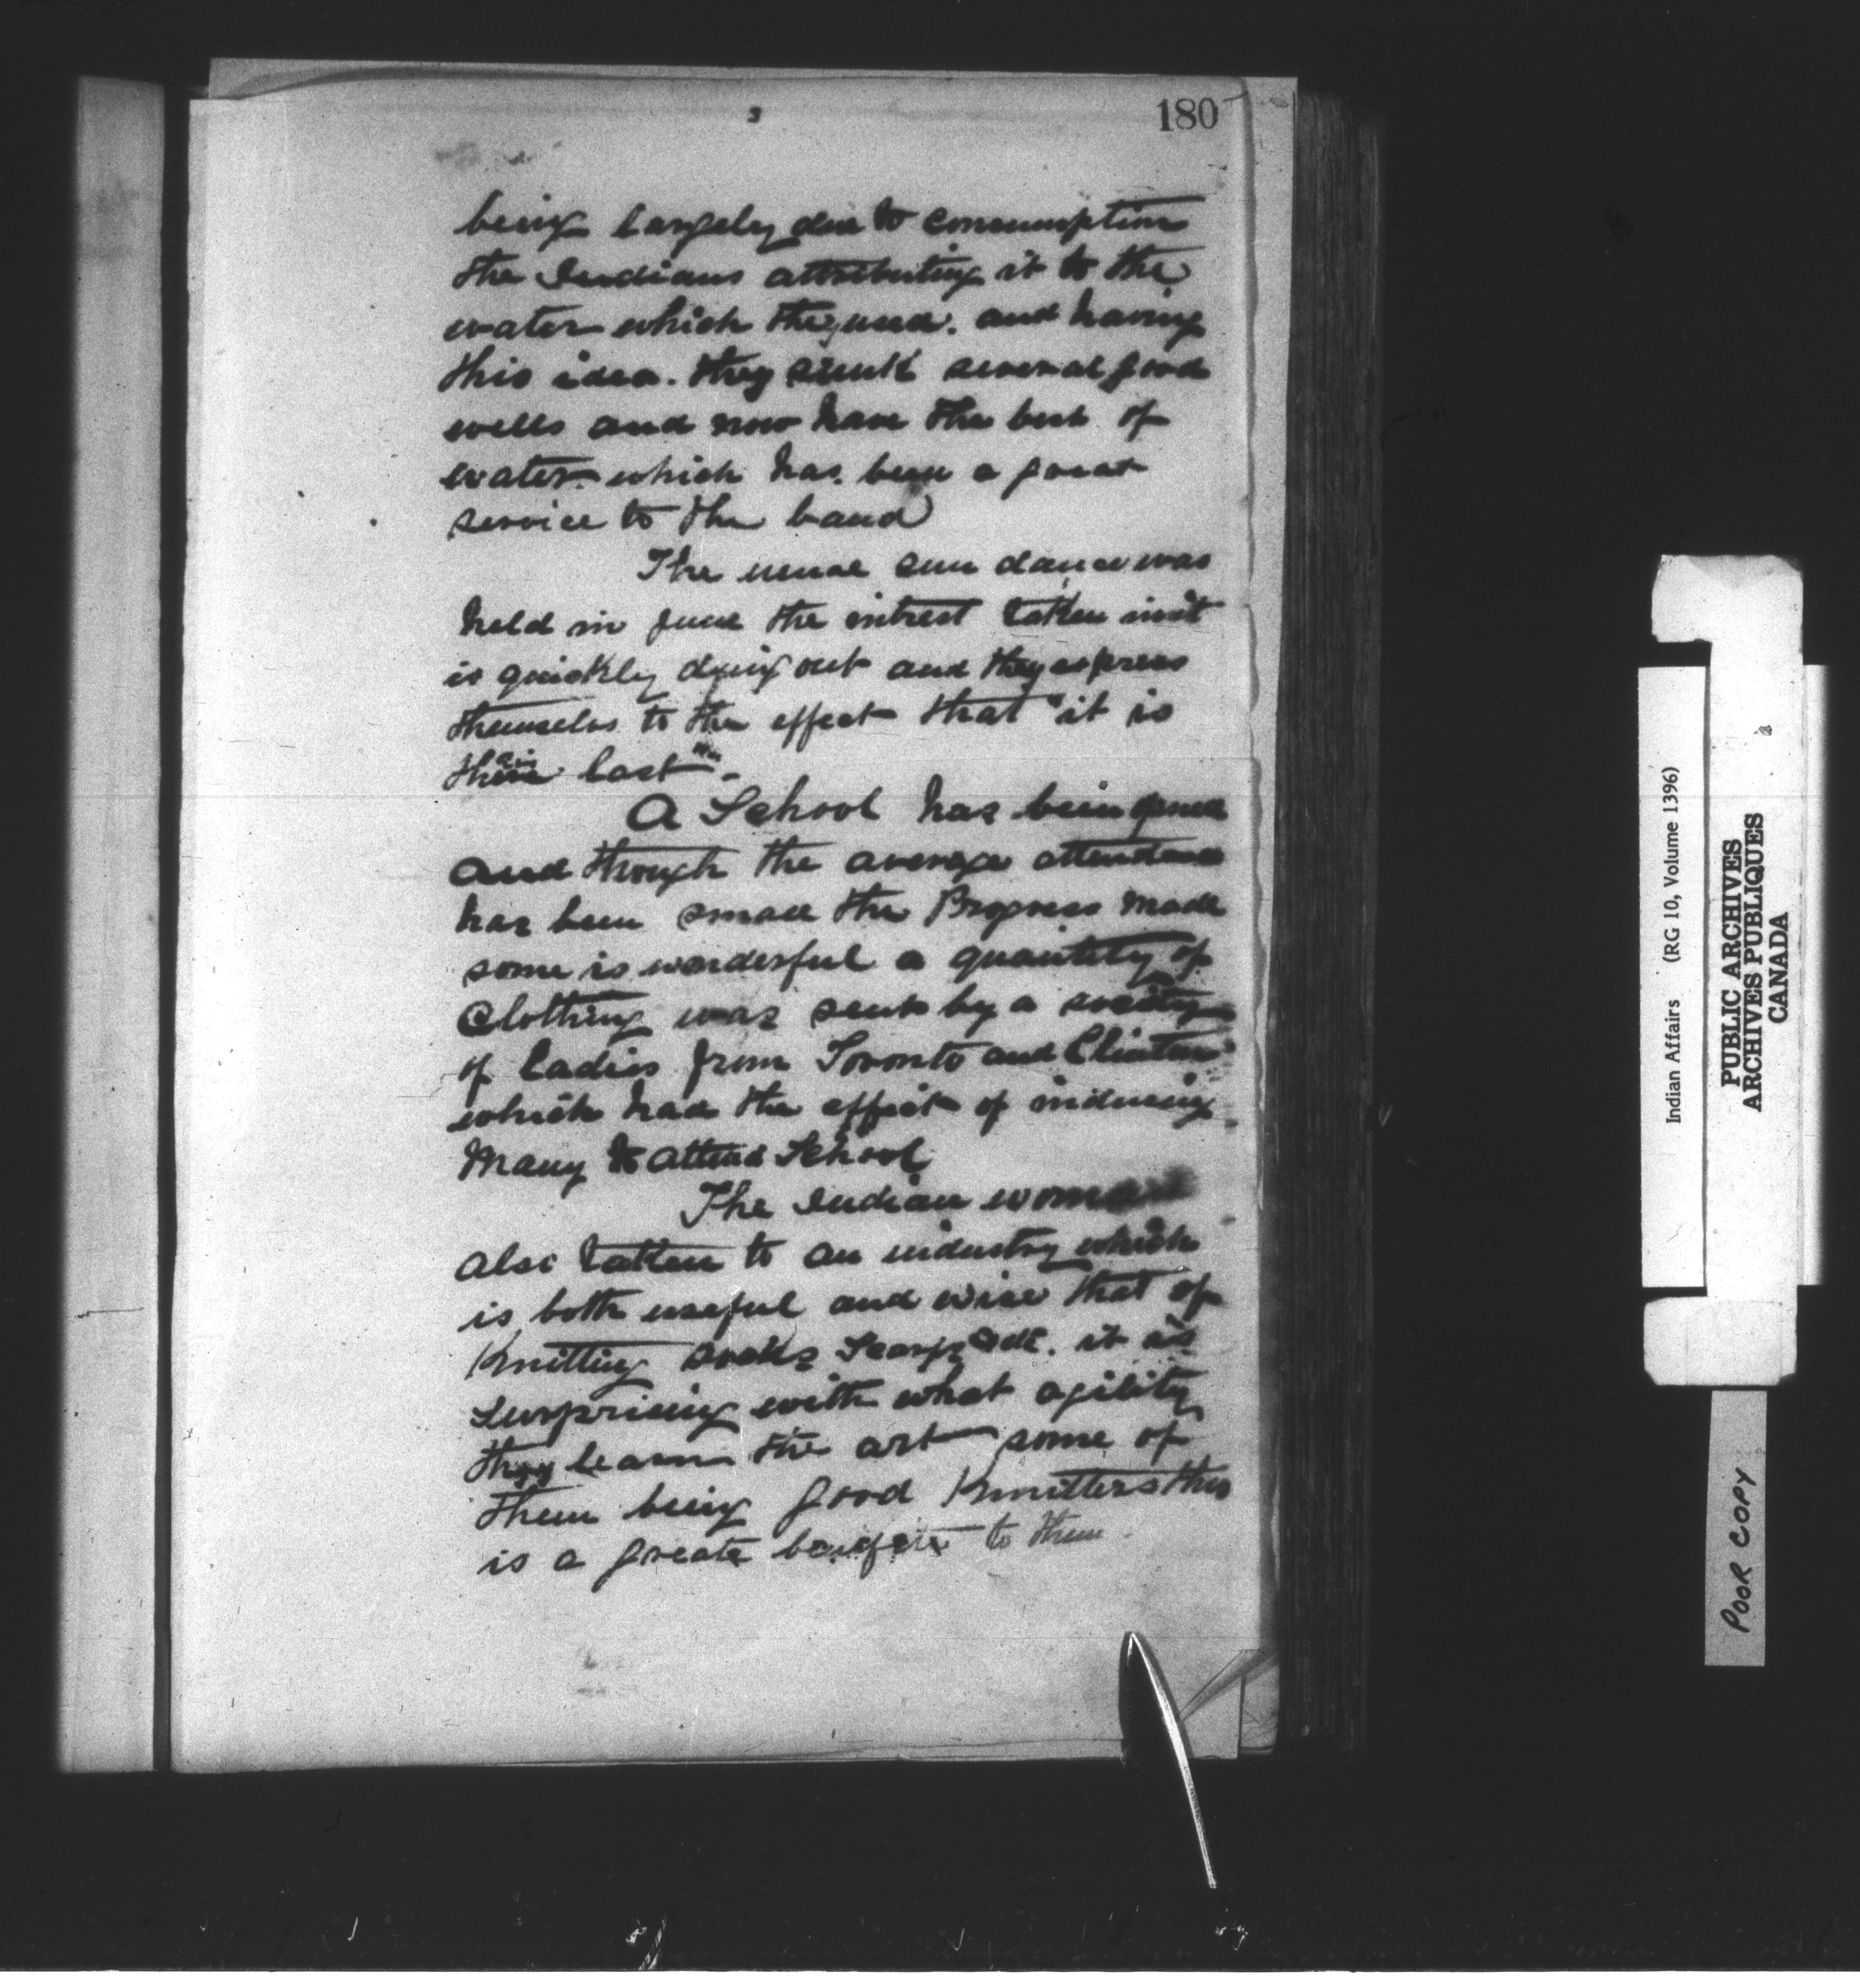 3
180
being largely due to consumption
the Indians attributing it to the
water which they used. and having
this idea. they sunk several good
wells and now have the best of
water which has been a great
service to the band
The usual sun dance was
held in June the intrest taken in it
is quickly dying out and they express
themselvs to the effect that "it is
their last".
A School has been opened
and though the average attendance
has been small the Progress made
some is wonderful a quantity of
Clothing was sent by a society
of Ladies from Toronto and Clinton
which had the effect of inducing
Many to attend School
The Indian woman
also taken to an industry which
is both useful and wise that of
Knitting socks Scarfs etc. it is
surprising with what agility
they learn the art some of
them being good Knitters this
is a greate benefit to them.
Indian Affairs (RG 10, Volume 1396)
PUBLIC ARCHIVES
ARCHIVES PUBLIQUES
CANADA
POOR COPY